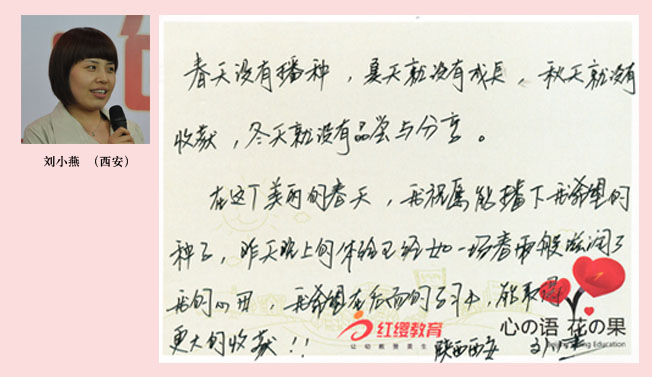 刘小燕 （西安）
春天没有播种，夏天就没有成长，秋天就没有
收获，冬天就没有品尝与分享。
在这个美丽的春天，我祝愿能播下我希望的
种子，昨天晚上的体验已经如一场春雨般滋润了
我的心田，我希望在后面的学习中，能取得
更大的收获！！
陕西西安
红缨教育
心の语 花の果